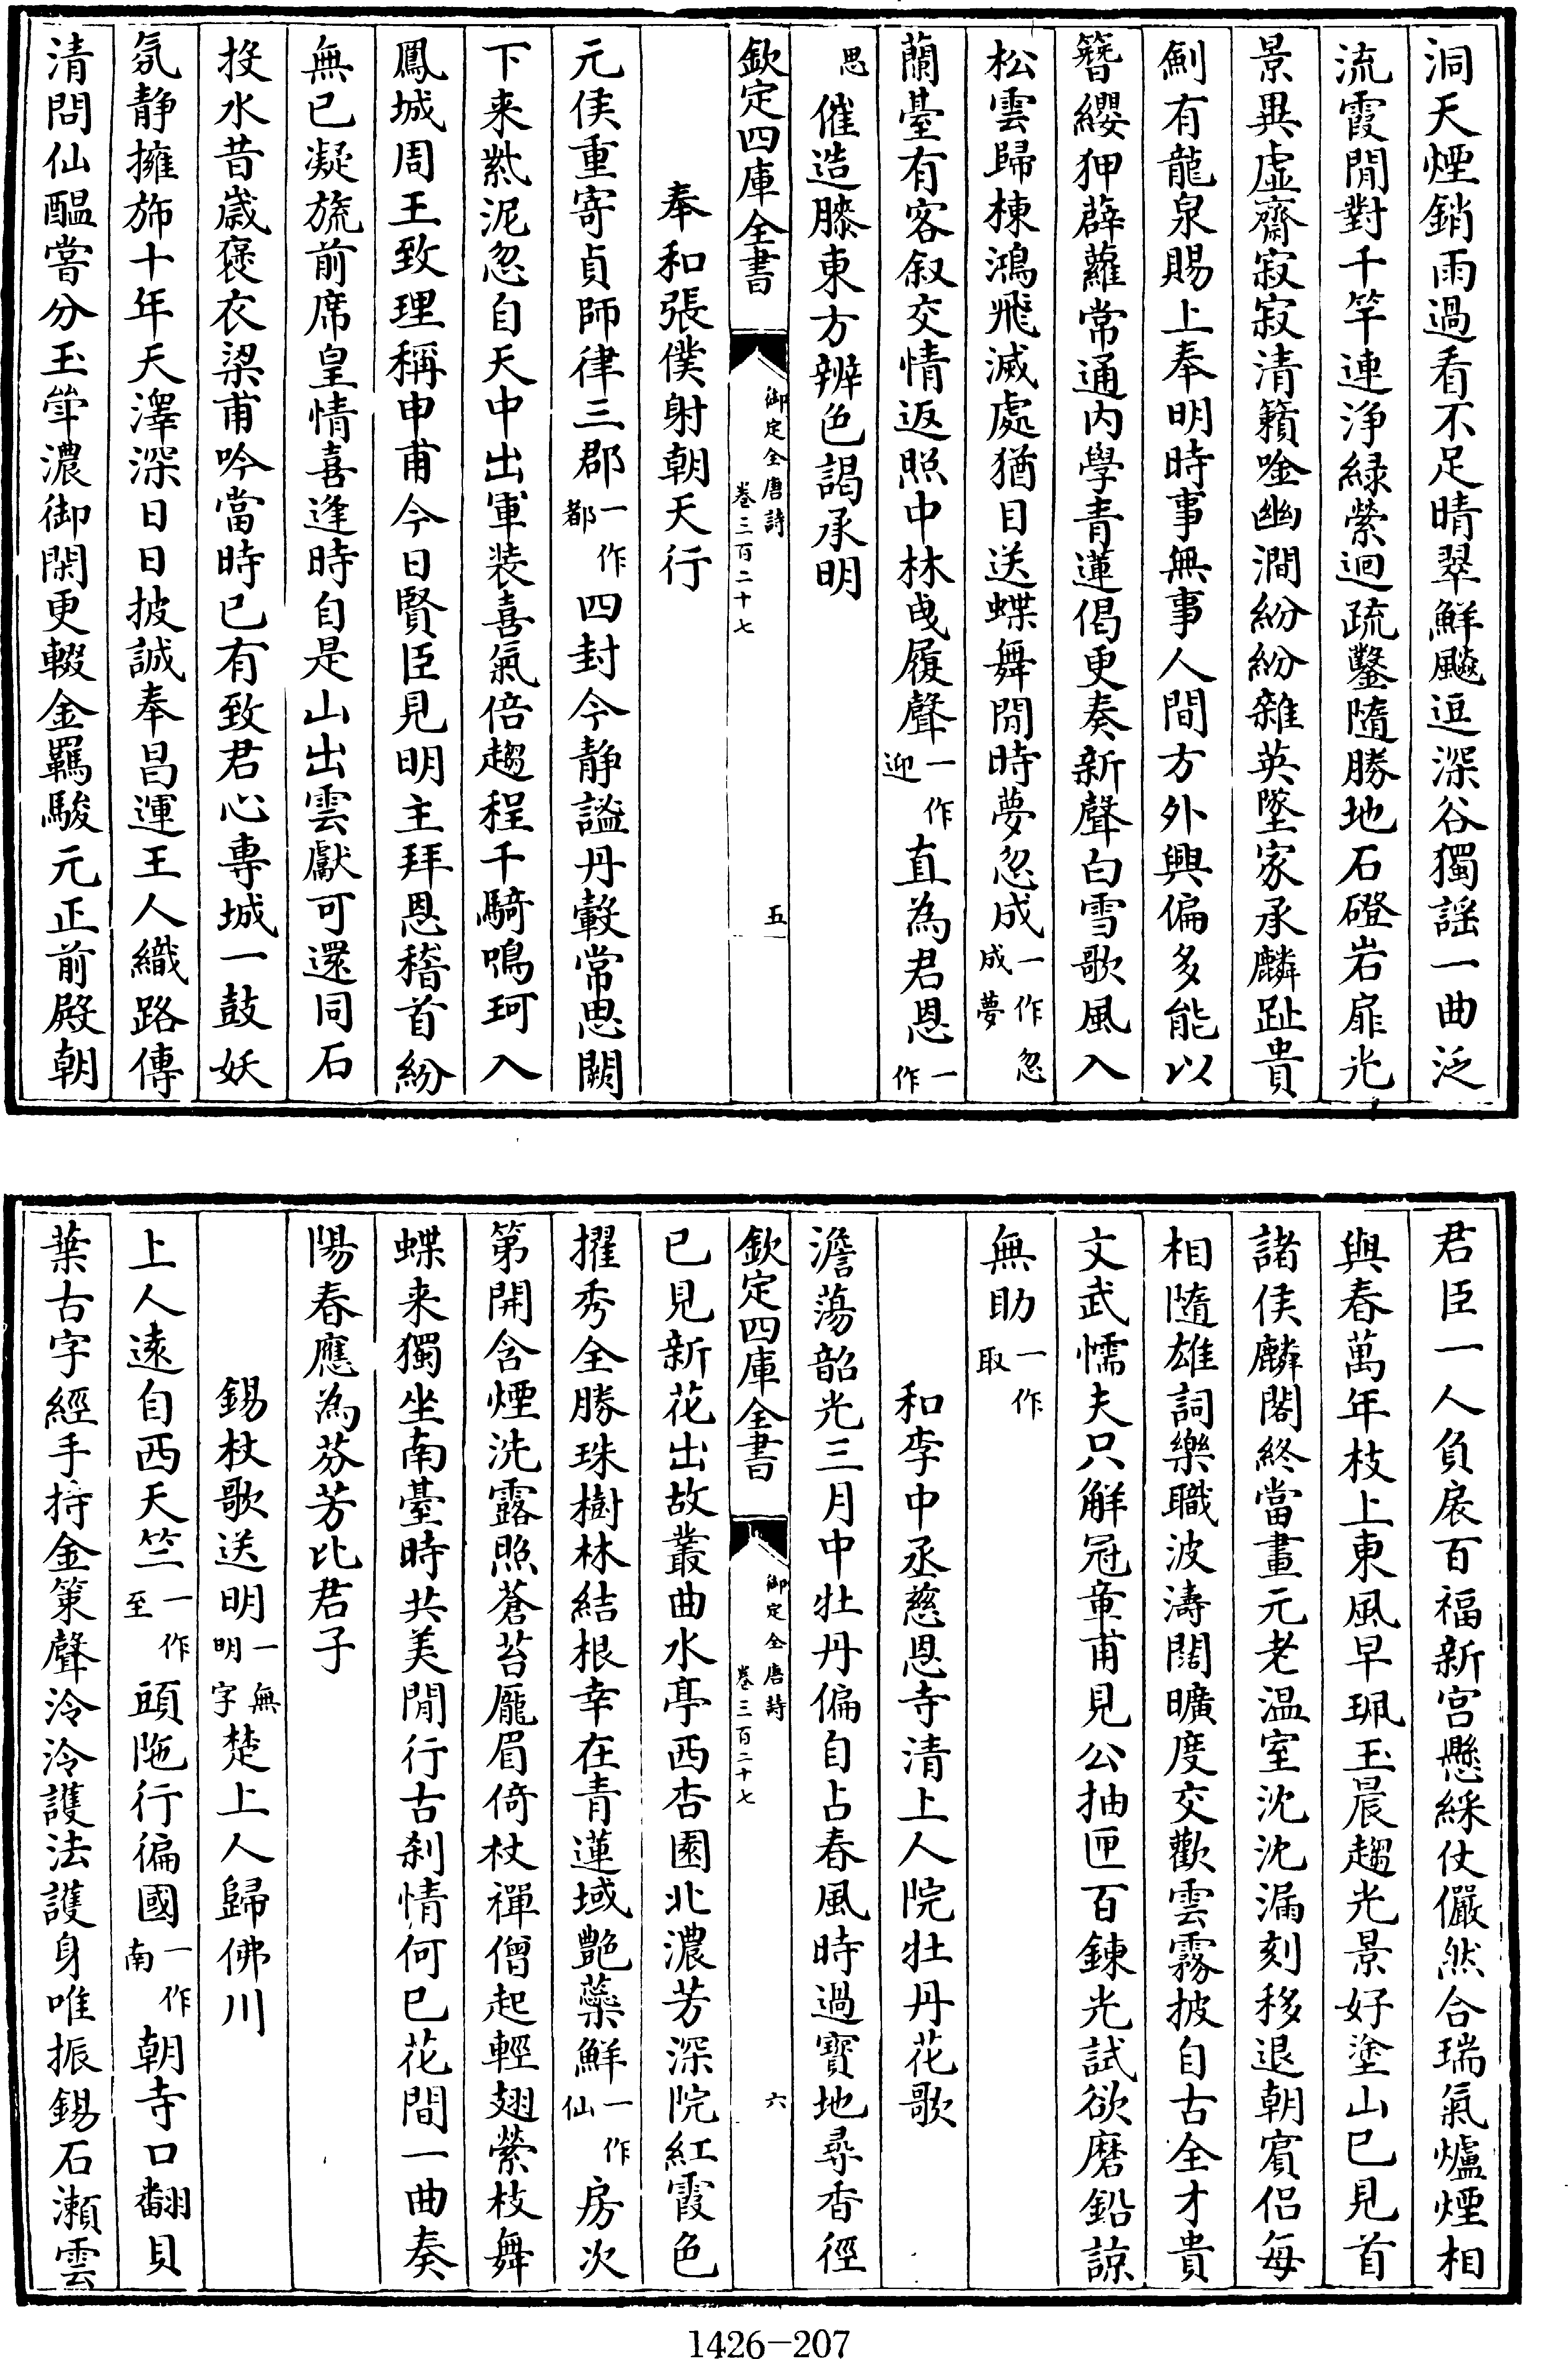 洞天煙銷雨過看不足晴翠鮮飈逗深谷獨謡一曲泛
流霞閒對千竿連淨緑縈迴疏鑿隨勝地石磴岩扉光
景異虛齋寂寂清籟唫幽澗紛紛雜英墜家承麟趾貴
劍有龍泉賜上奉明時事無事人間方外興偏多能以
簪纓狎薜蘿常通内學青蓮偈更奏新聲白雪歌風入
松雲歸棟鴻飛滅處猶目送蝶舞閒時夢忽成一作忽成夢
蘭臺有客叙交情返照中林曵履聲一作迎直為君恩一作
思催造膝東方辨色謁承明
欽定四庫全書 御定全唐詩卷三百二十七 五
奉和張僕射朝天行
元侯重寄貞師律三郡一作都四封今静謐丹轂常思闕
下来紫泥忽自天中出軍装喜氣倍趨程千騎鳴珂入
鳳城周王致理稱申甫今日賢臣見明主拜恩稽首紛
無已凝旒前席皇情喜逢時自是山出雲獻可還同石
投水昔歲褒衣梁甫吟當時已有致君心專城一鼓妖
氛静擁斾十年天澤深日日披誠奉昌運王人織路傳
清問仙醖嘗分玉斝濃御閑更輟金羈駿元正前殿朝
君臣一人負扆百福新宫懸綵仗儼然合瑞氣爐煙相
與春萬年枝上東風早珮玉晨趨光景好塗山已見首
諸侯麟閣終當畫元老温室沈沈漏刻移退朝賔侣每
相隨雄詞樂職波濤闊曠度交歡雲霧披自古全才貴
文武懦夫只解冠章甫見公抽匣百鍊光試欲磨鉛諒
無助一作取
和李中丞慈恩寺清上人院牡丹花歌
澹蕩韶光三月中牡丹偏自占春風時過寳地尋香徑
欽定四庫全書 御定全唐詩卷三百二十七 六
已見新花出故叢曲水亭西杏園北濃芳深院紅霞色
擢秀全勝珠樹林結根幸在青蓮域艶蘂鮮一作仙房次
第開含煙洗露照蒼苔龎眉倚杖禪僧起輕翅縈枝舞
蝶来獨坐南臺時共美閒行古刹情何已花間一曲奏
陽春應為芬芳比君子
錫杖歌送明一無明字楚上人歸佛川
上人遠自西天竺一作至頭陁行徧國一作南朝寺口翻貝
葉古字經手持金策聲泠泠護法護身唯振錫石瀬雲
1426-207